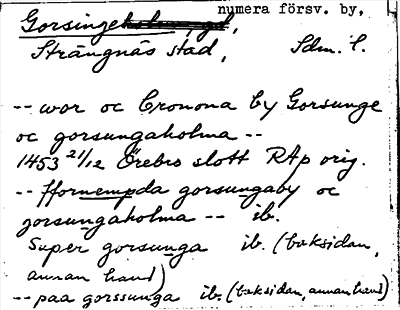 numera försv. by,
Gorsinge
Strängnäs stad, Sdm. l.
-- wor oc Cronona by Gorsunge
oc gorsungaholma --
1453 21/12 Örebro slott RAp orig.
-- ffornempda gorsungaby oc
gorsungaholma -- ib.
Super gorsunga ib. (baksidan,
annan hand)
-- paa gorssunga ib. (baksidan, annan hand)